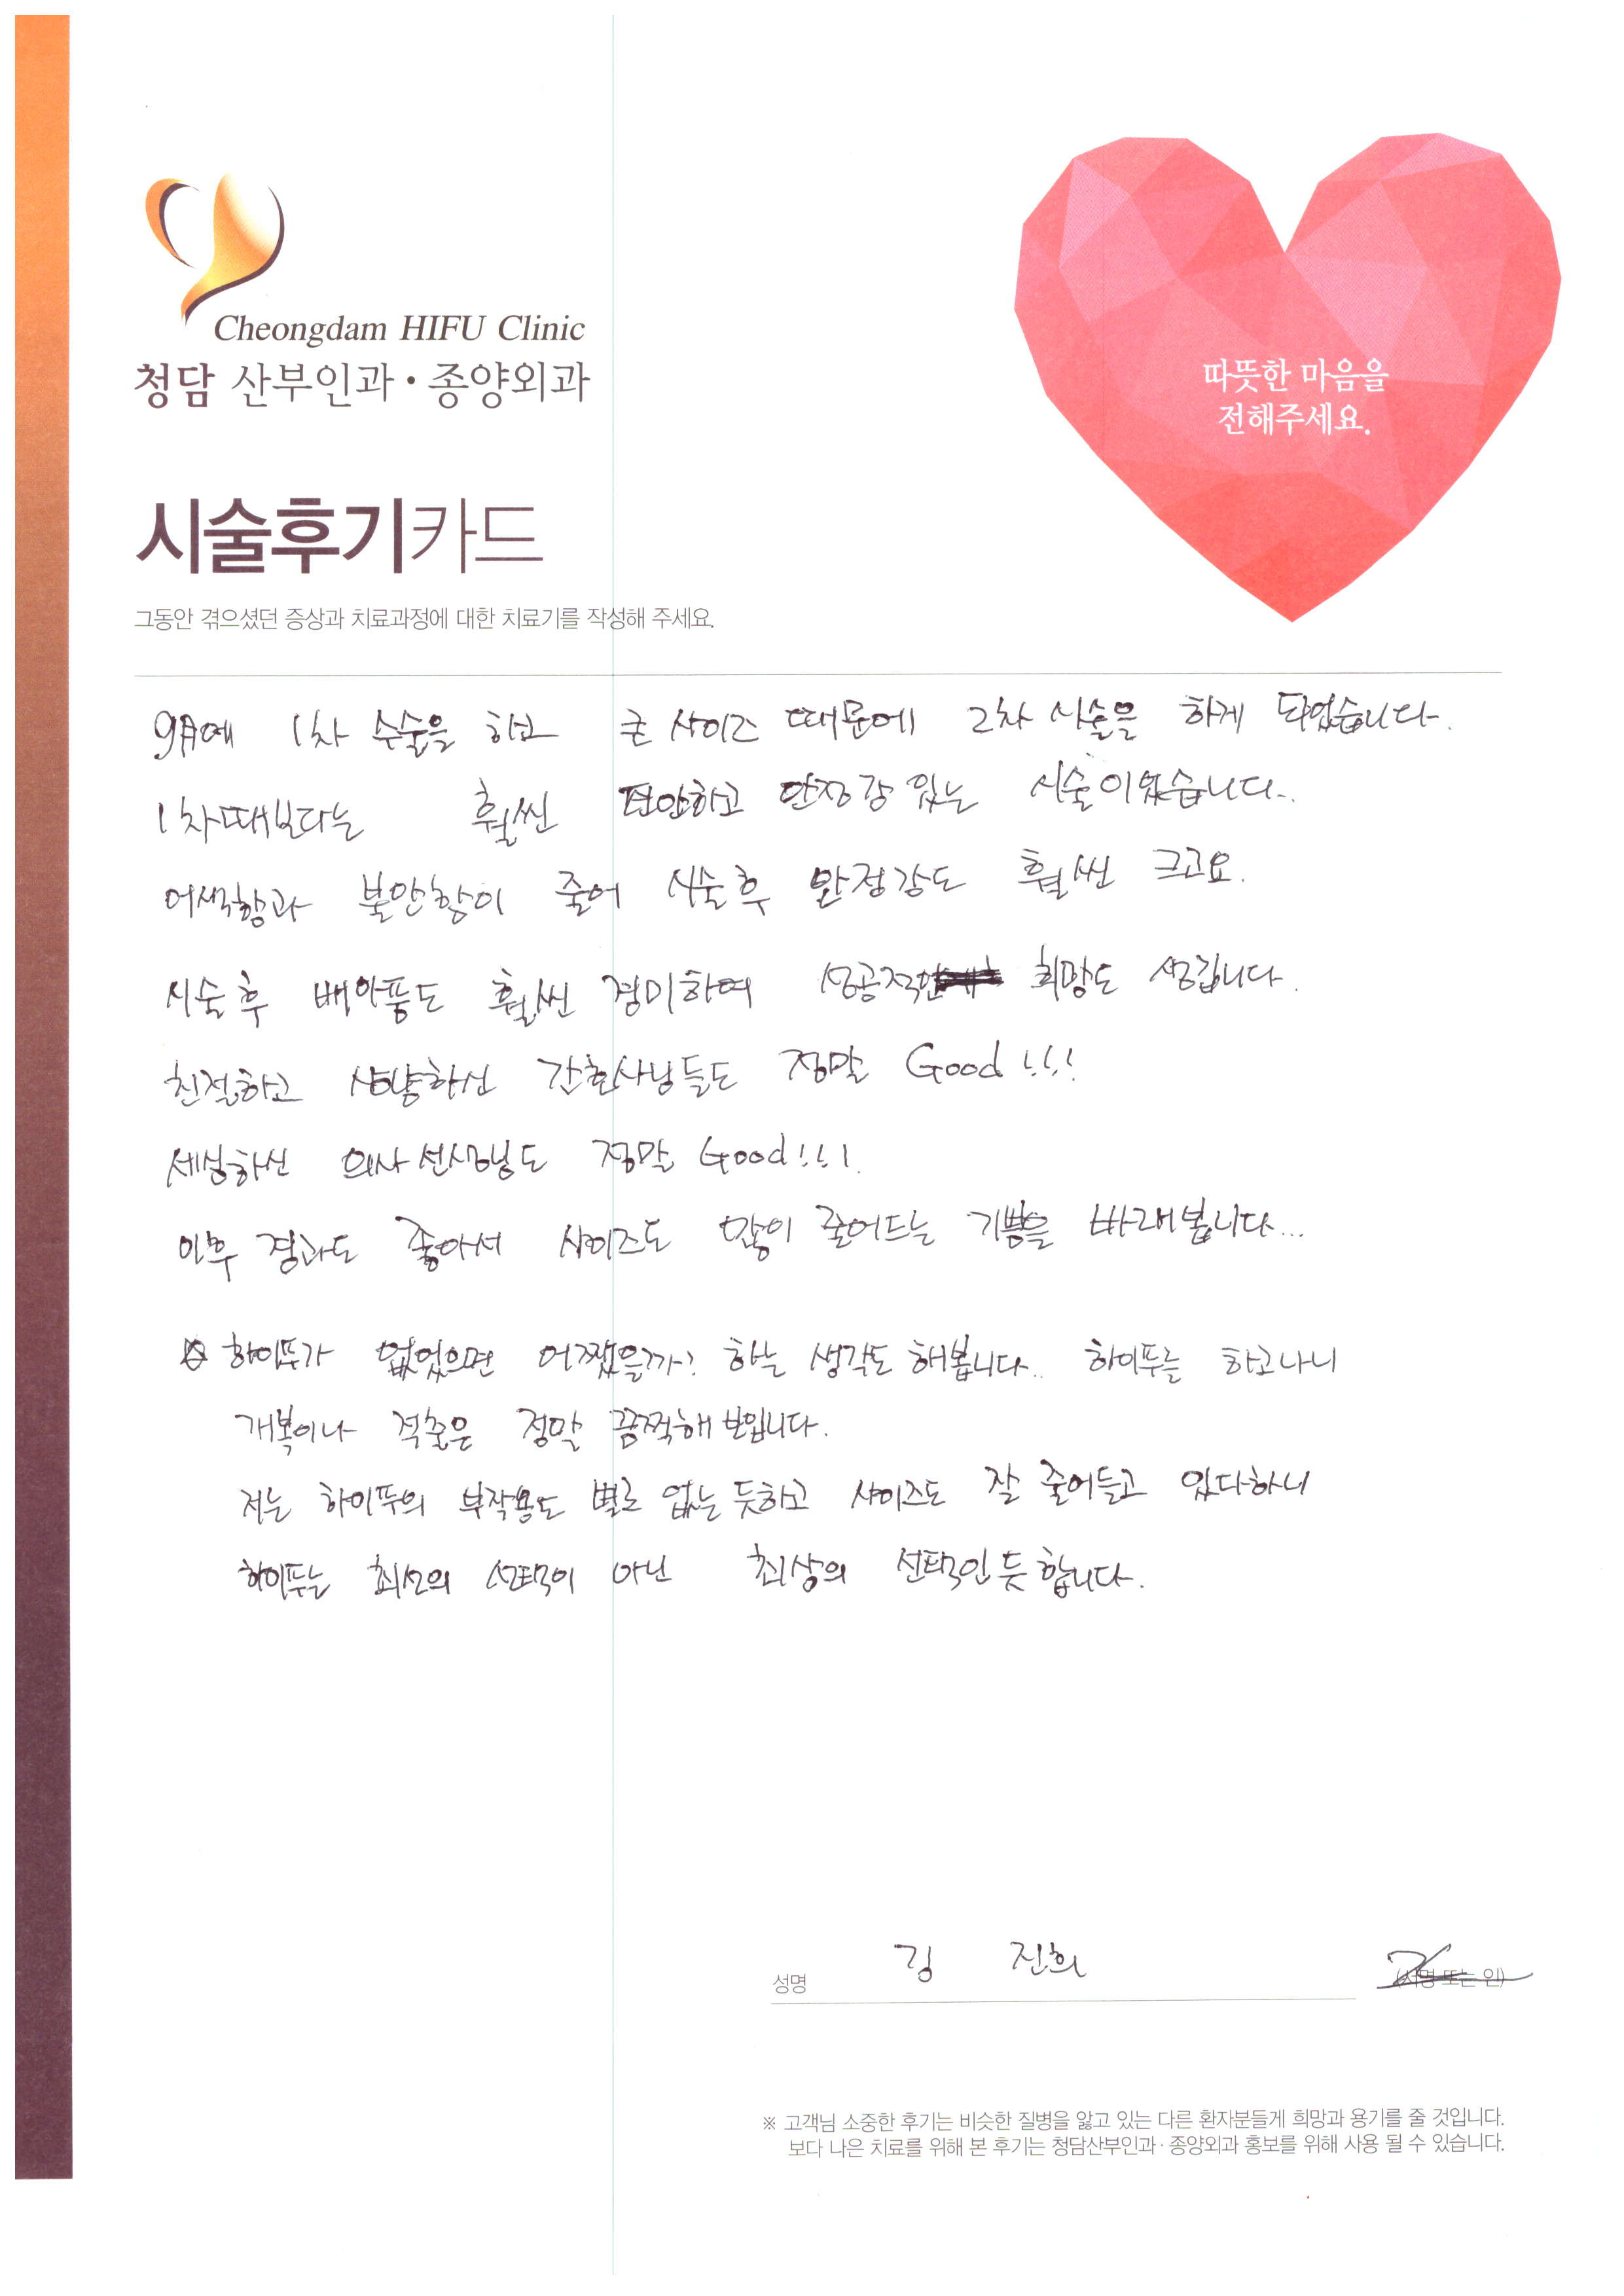 Cheongdam HIFU Clinic
청담 산부인과·종양외과
따뜻한 마음을
전해주세요.
시술후기카드
그동안 겪으셨던 증상과 치료과정에 대한 치료기를 작성해 주세요.
9月에 1차 수술을 하고 큰 사이즈 때문에 2차 시술을 하게 되었습니다.
1차때보다는 훨씬 편안하고 안정감 있는 시술이였습니다..
어색함과 불안함이 줄어 시술후 안정감도 훨씬 크고요.
시술 후 배아픔도 훨씬 경미하여 성공적인 희망도 생깁니다.
친절하고 상냥하신 간호사님들도 정말 Good!!!
세심하신 의사선생님도 정말 Good!!!.
이후 경과도 좋아서 사이즈도 많이 줄어드는 기쁨을 바래봅니다...
☆ 하이푸가 없었으면 어쨌을까? 하는 생각도 해봅니다.. 하이푸를 하고나니
개복이나 적출은 정말 끔찍해 보입니다.
저는 하이푸의 부작용도 별로 없는 듯하고 사이즈도 잘 줄어들고 있다하니
하이푸는 최선의 선택이 아닌 최상의 선택인 듯 합니다.
성명 김 진희 (서명 또는 인)
※ 고객님 소중한 후기는 비슷한 질병을 앓고 있는 다른 환자분들게 희망과 용기를 줄 것입니다.
보다 나은 치료를 위해 본 후기는 청담산부인과·종양외과 홍보를 위해 사용 될 수 있습니다.